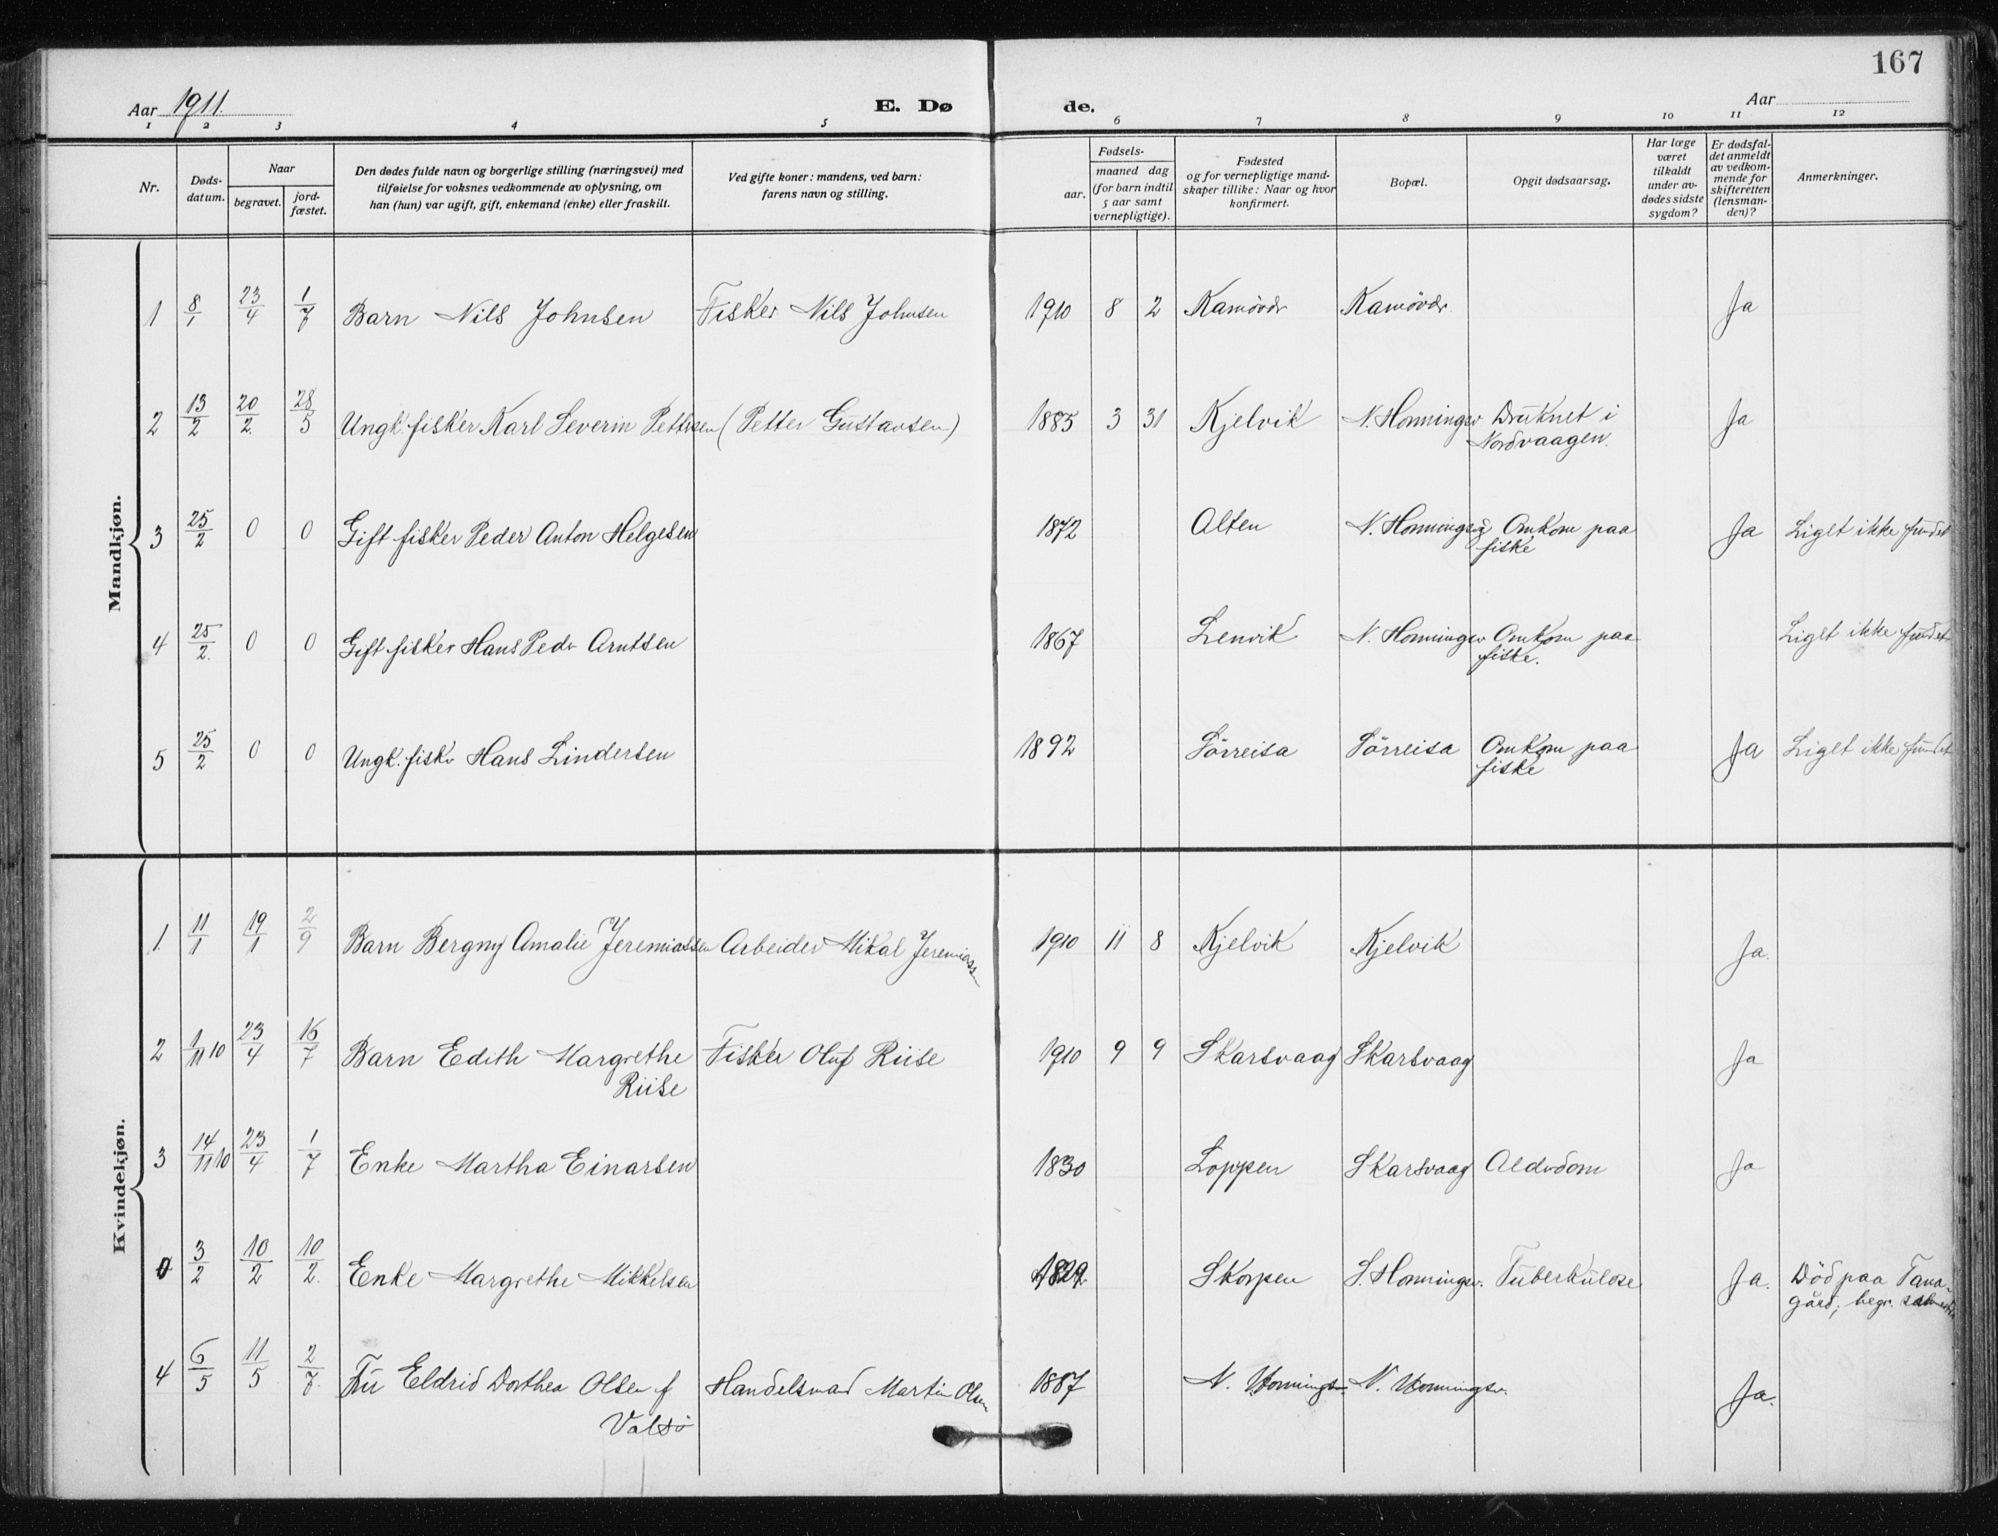 167
Aar 1911.
E. Dø de.
Aar
1 2 3 4 5 6 7 8 9 10 11 12
Nr.
Døds-
datum.
Naar
begravet.
jord-
fæstet.
Den dødes fulde navn og borgerlige stilling (næringsvei) med
tilføielse for voksnes vedkommende av oplysning, om
han (hun) var ugift, gift, enkemand (enke) eller fraskilt.
Ved gifte koner: mandens, ved barn:
farens navn og stilling.
Fødsels-
aar.
maaned dag
(for barn indtil
5 aar samt
vernepligtige).
Fødested
og for vernepligtige mand-
skaper tillike: Naar og hvor
konfirmert.
Bopæl.
Opgit dødsaarsag.
Har læge
været
tilkaldt
under av-
dødes sidste
sygdom?
Er dødsfal-
det anmeldt
av vedkom-
mende for
skifteretten
(lensman-
den)?
Anmerkninger.
Mandkjøn.
1 8/1 23/4 1/7 Barn Nils Johnsen Fisker Nils Johnsen 1910 8 2 Kamøvær Kamøvær Ja
2 13/2 20/2. 28/5 Ungk. fisker Karl Severin Pettersen (Petter Gustavsen) 1885 3 31 Kjelvik N. Honningsv Druknet i Ja
Nordvaagen.
3 25/2 0 0 Gift fisker Peder Anton Helgesen 1872 Alten N. Honningsvg Omkom paa Ja Liget ikke fundet
fiske
4 25/2. 0 0 Gift fisker Hans Peder Arntsen 1867 Lenvik N. Honningsv Omkom paa Liget ikke fundet
fiske.
5 25/2 0 0 Ungk. fisker Hans Lindersen 1892 Sörreisa Sörreisa Omkom paa Ja Liget ikke fundet
fiske
Kvindekjøn.
1 11/1 19/1 2/9 Barn Bergny Amalie Jeremiassen Arbeider Mikal Jeremiassen 1910 11 8 Kjelvik Kjelvik Ja.
2 1/11 10 23/4 16/7 Barn Edith Margrethe Fisker Oluf Riise 1910 9 9 Skarsvaag Skarsvaag Ja
Riise
3 14/11 10 23/4 1/7 Enke Martha Einarsen 1830 Loppen Skarsvaag Alderdom Ja
0 3/2 10/2 10/2. Enke Margrethe Mikkelsen 1829 Skorpen S. Honningsv. Tuberkulose Ja. Död paa Tana-
gård; begr.
4 6/5 11/5 2/7. Fru Eldrid Dorthea Olsen f Handelsmand Martin Olsen 1887 N. Honningsv N. Honningsv. Ja.
Valsö